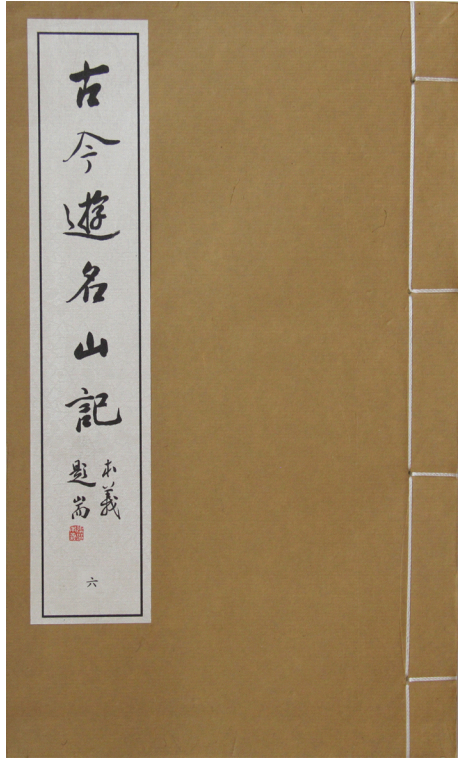 古今遊名山記
本義
題耑
六